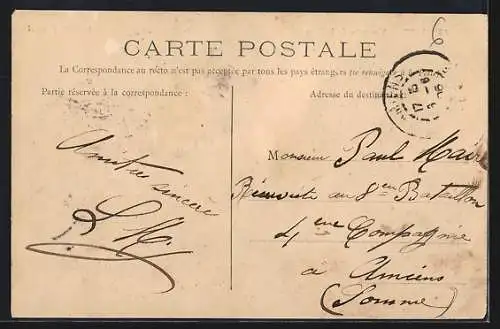 6
CARTE POSTALE
La Correspondance au recto n'est pas acceptée par tous les pays étrangers (se renseigner
Partie réservée à la correspondance :
Adresse du destinataire
Amitié sincère
Monsieur Paul Maire
au 8en Bataillon
4eme Compagnie
à Amiens
(Somme)